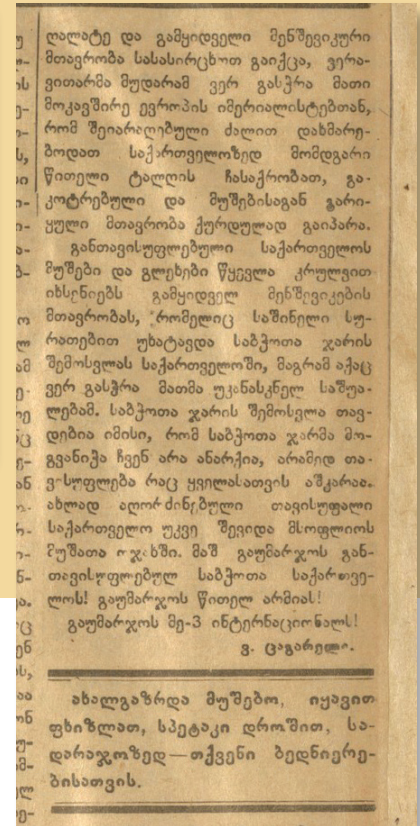 ღალატე და გამყიდველი მენშევიკური
მთავრობა სასასირცხოთ გაიქცა, ვერა-
ვითარმა მუდარამ ვერ გასჭრა მათი
მოკავშირე ევროპის იმერიალისტებთან,
რომ შეიარაღებული ძალით დახმარე-
ბოდათ საქართველოზედ მომდგარი
წითელი ტალღის ჩასაქრობათ, გა-
კოტრებული და მუშებისაგან გარი-
ყული მთავრობა ქურდულად გაიპარა.
განთავისუფლებული საქართველოს
მუშები და გლეხები წყევლა კრულვით
იხსენიებს გამყიდველ მენშევიკების
მთავრობას, რომელიც საშინელი სუ-
რათებით უხატავდა საბჭოთა ჯარის
შემოსვლას საქართველოში, მაგრამ აქაც
ვერ გასჭრა მათმა უკანასკნელ საშუა-
ლებამ. საბჭოთა ჯარის შემოსვლა თავ-
დებია იმისი, რომ საბჭოთა ჯარმა მო-
გვანიჭა ჩვენ არა ანარქია, არამედ თა-
ვისუფლება რაც ყველასათვის აშკარაა.
ახლად აღორძინებული თავისუფალი
საქართველო უკვე შევიდა მსოფლიოს
მუშათა ოჯახში. მაშ გაუმარჯოს გან-
თავისუფლებულ საბჭოთა საქართვე-
ლოს! გაუმარჯოს წითელ არმიას!
გაუმარჯოს მე-3 ინტერნაციონალს!
ვ. ცაგარელი.
ახალგაზრდა მუშებო, იყავით
ფხიზლათ, სპეტაკი დროშით, სა-
დარაჯოზედ—თქვენი ბედნიერე-
ბისათვის.